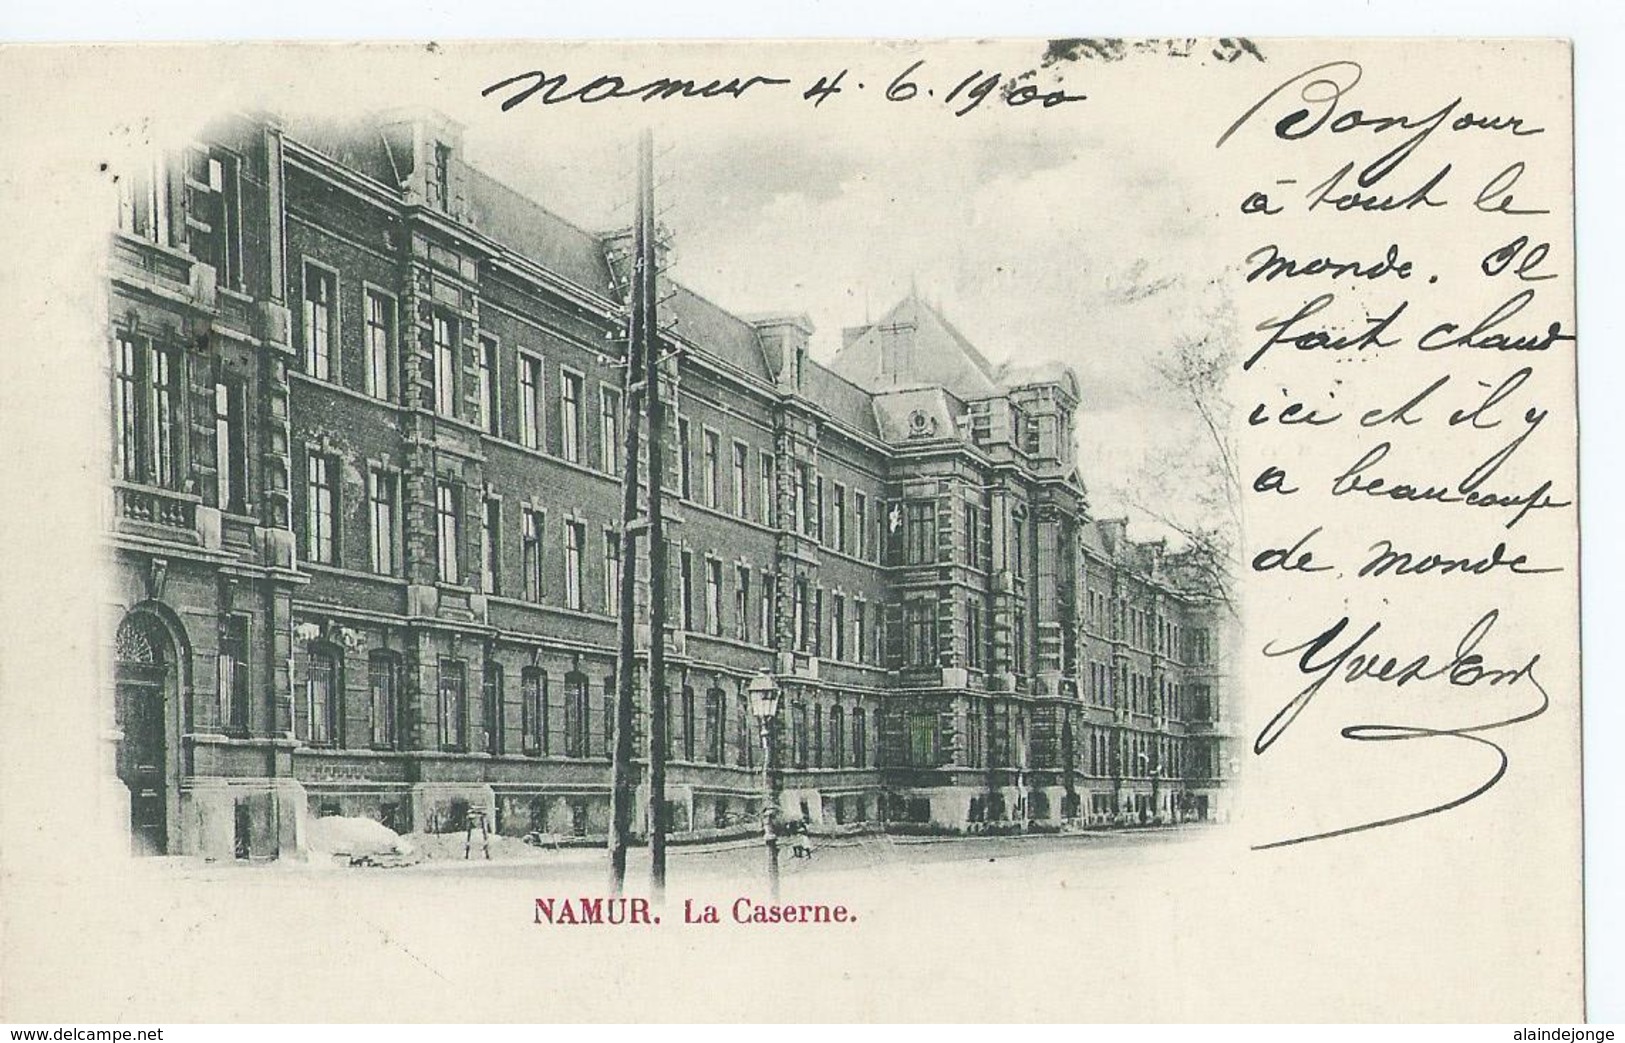 Namur 4.6.1900
Bonjour
à tout le
monde. Il
fait chaud
ici et il y
a beaucoup
de monde
NAMUR. La Caserne.
www.delcampe.net
alaindejonge